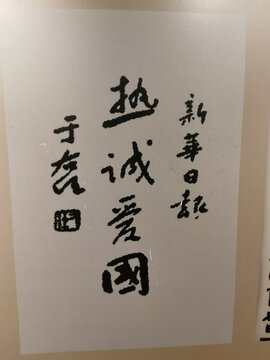 新華日報
热诚爱國
于右任